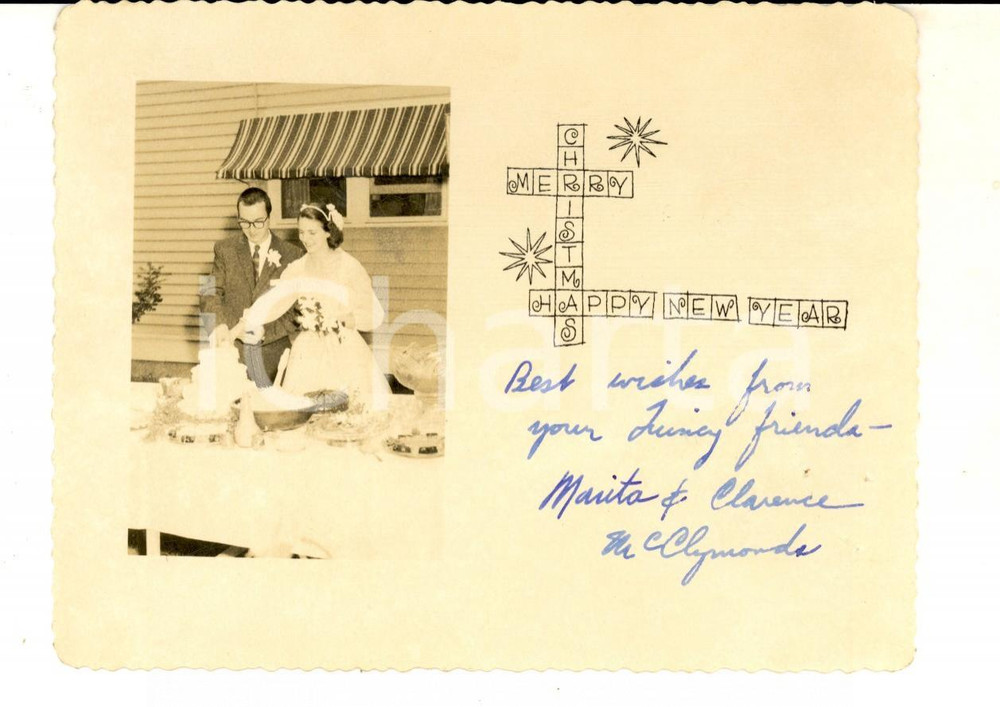 CHRISTMAS
MERRY
HAPPY NEW YEAR
Best wishes from
your Quincy friends—
Marita & Clarence
McClymonds